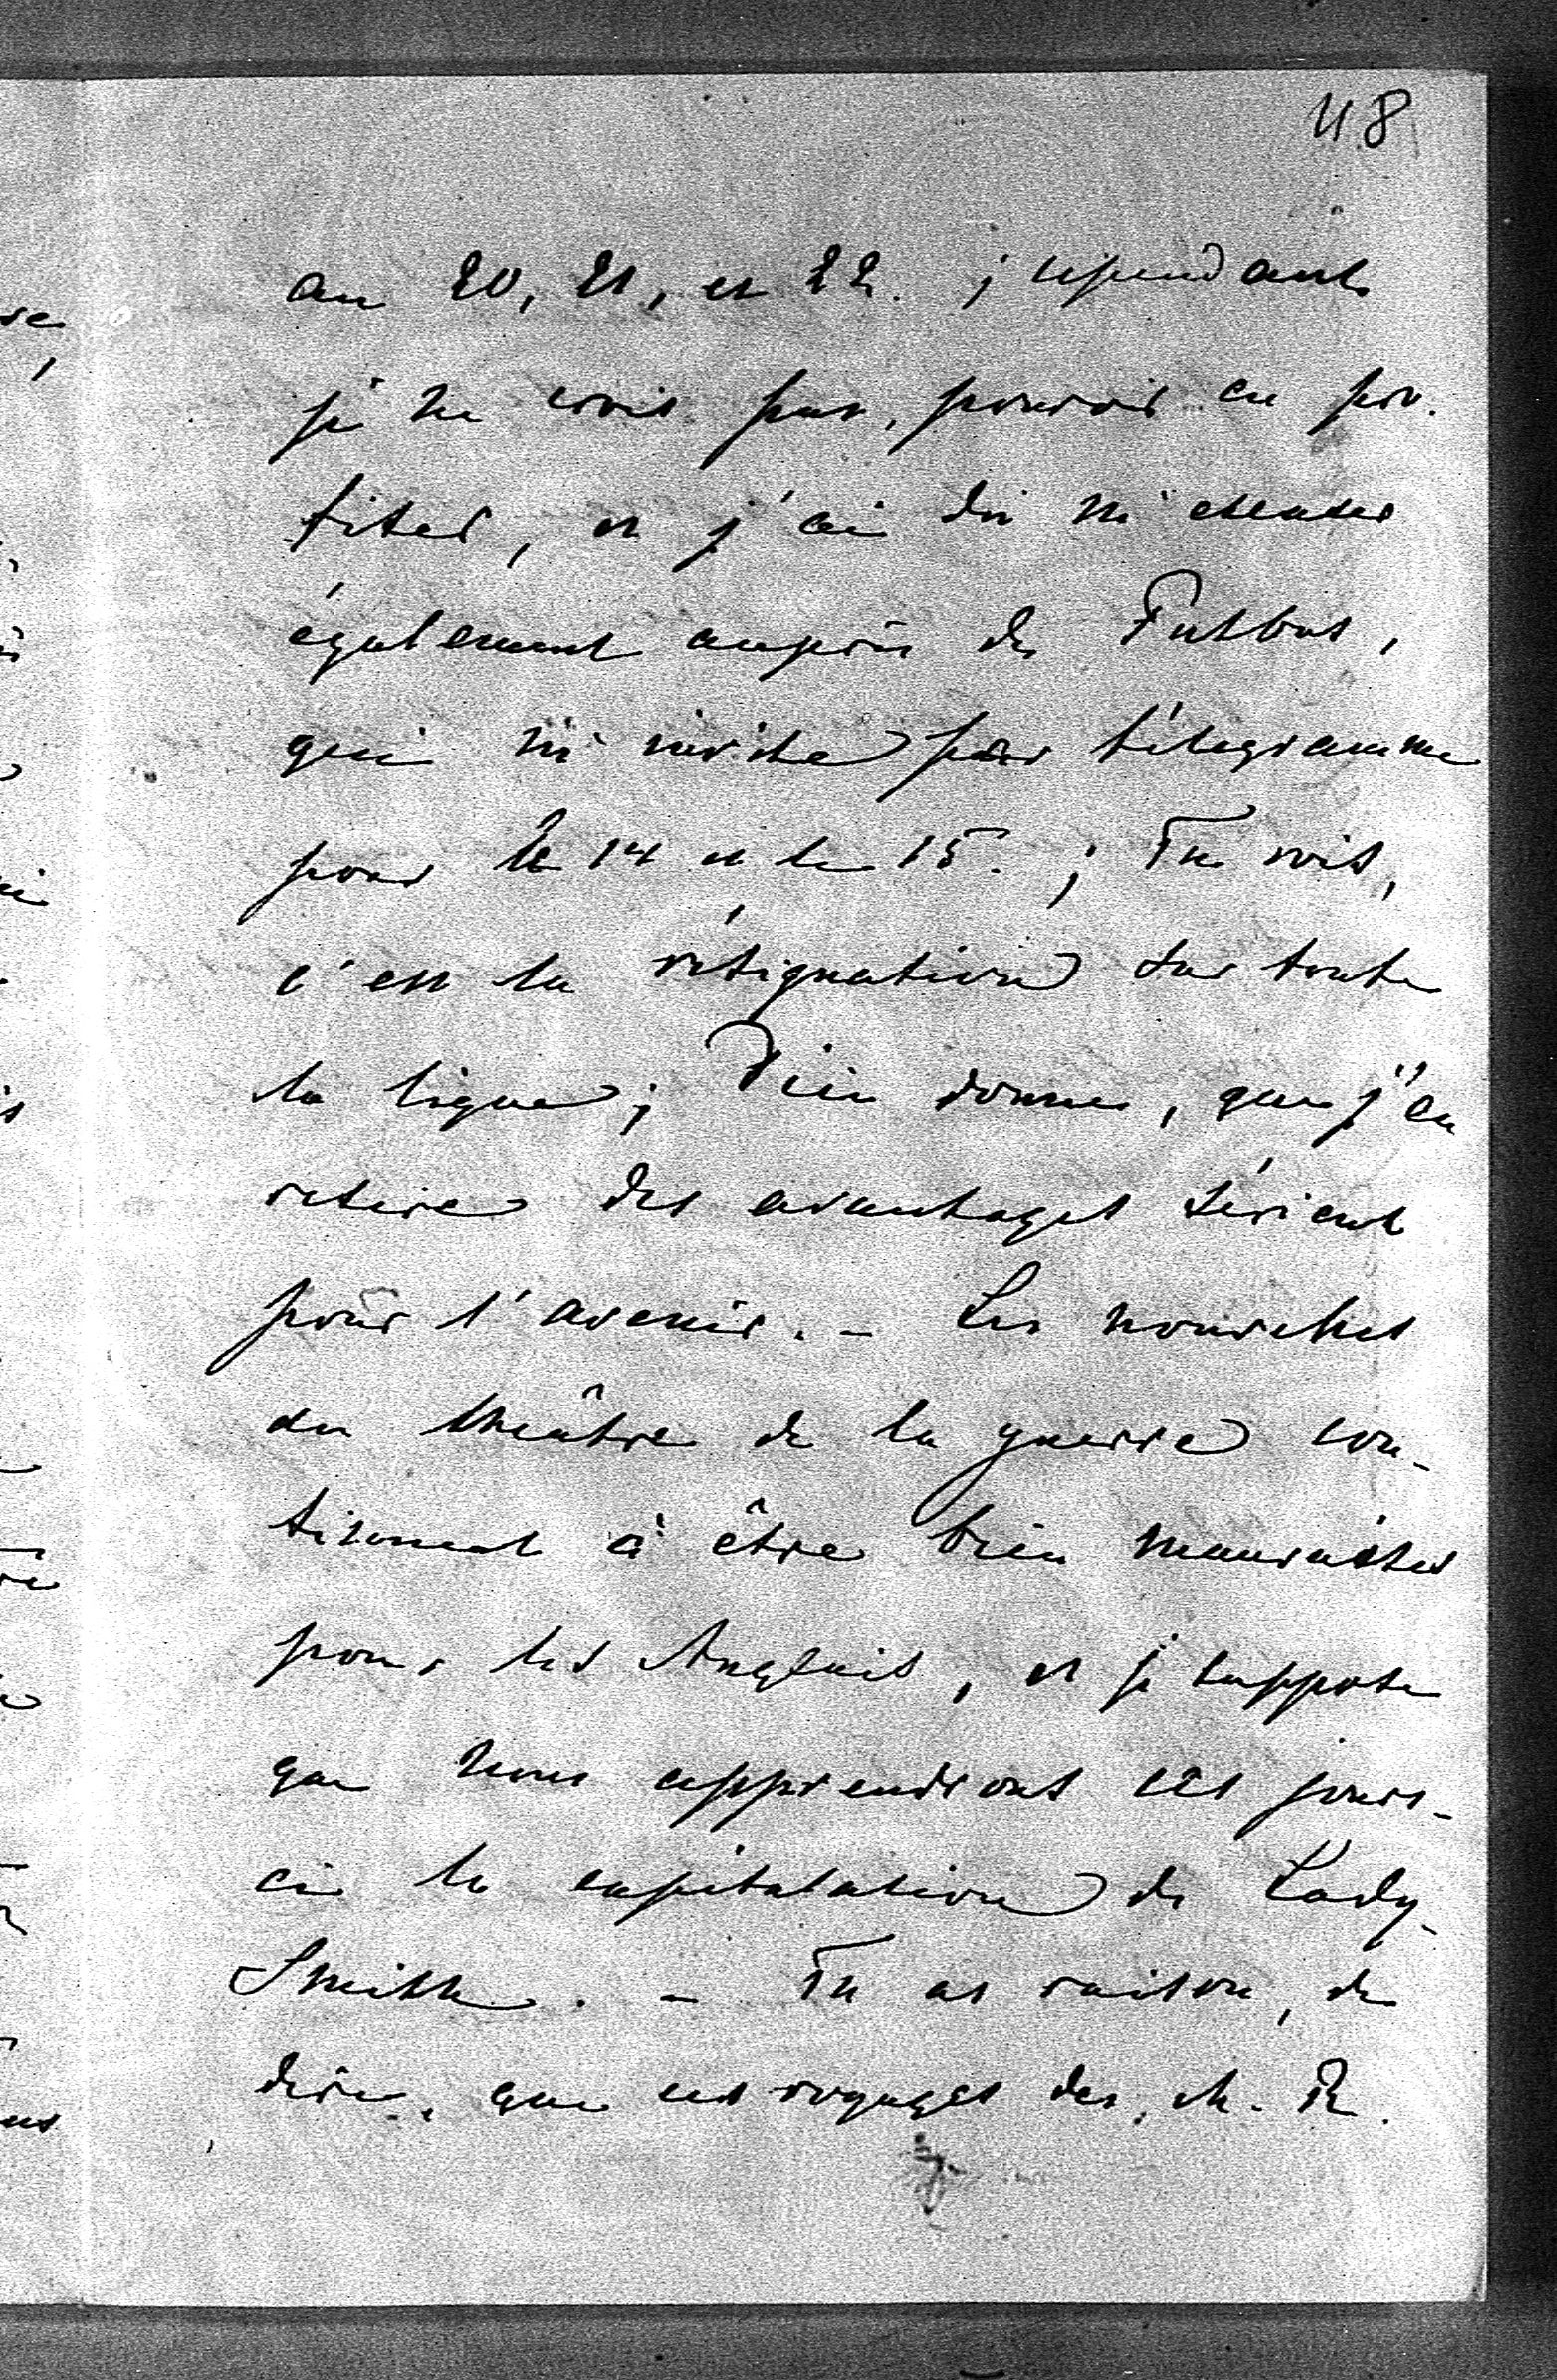 48
au 20, 21, et 22. ; cependant
je ne crois pas, pouvoir en pro-
fiter, et j'ai dû m'excuser
également auprès de Putbus,
qui m'invite par télégramme
pour le 14 et le 15. ; Tu vois,
c'est la résignation sur toute
la ligne ; Dieu donne, que j'en
retire des avantages sérieux
pour l'avenir. - Les nouvelles
du théâtre de la guerre con-
tinuent à être bien mauvaises
pour les Anglais, et je suppose
que nous apprendrons ces jours-
ci la capitulation de Lady-
Smith. - Tu as raison, de
dire, que ces voyages des M. R.